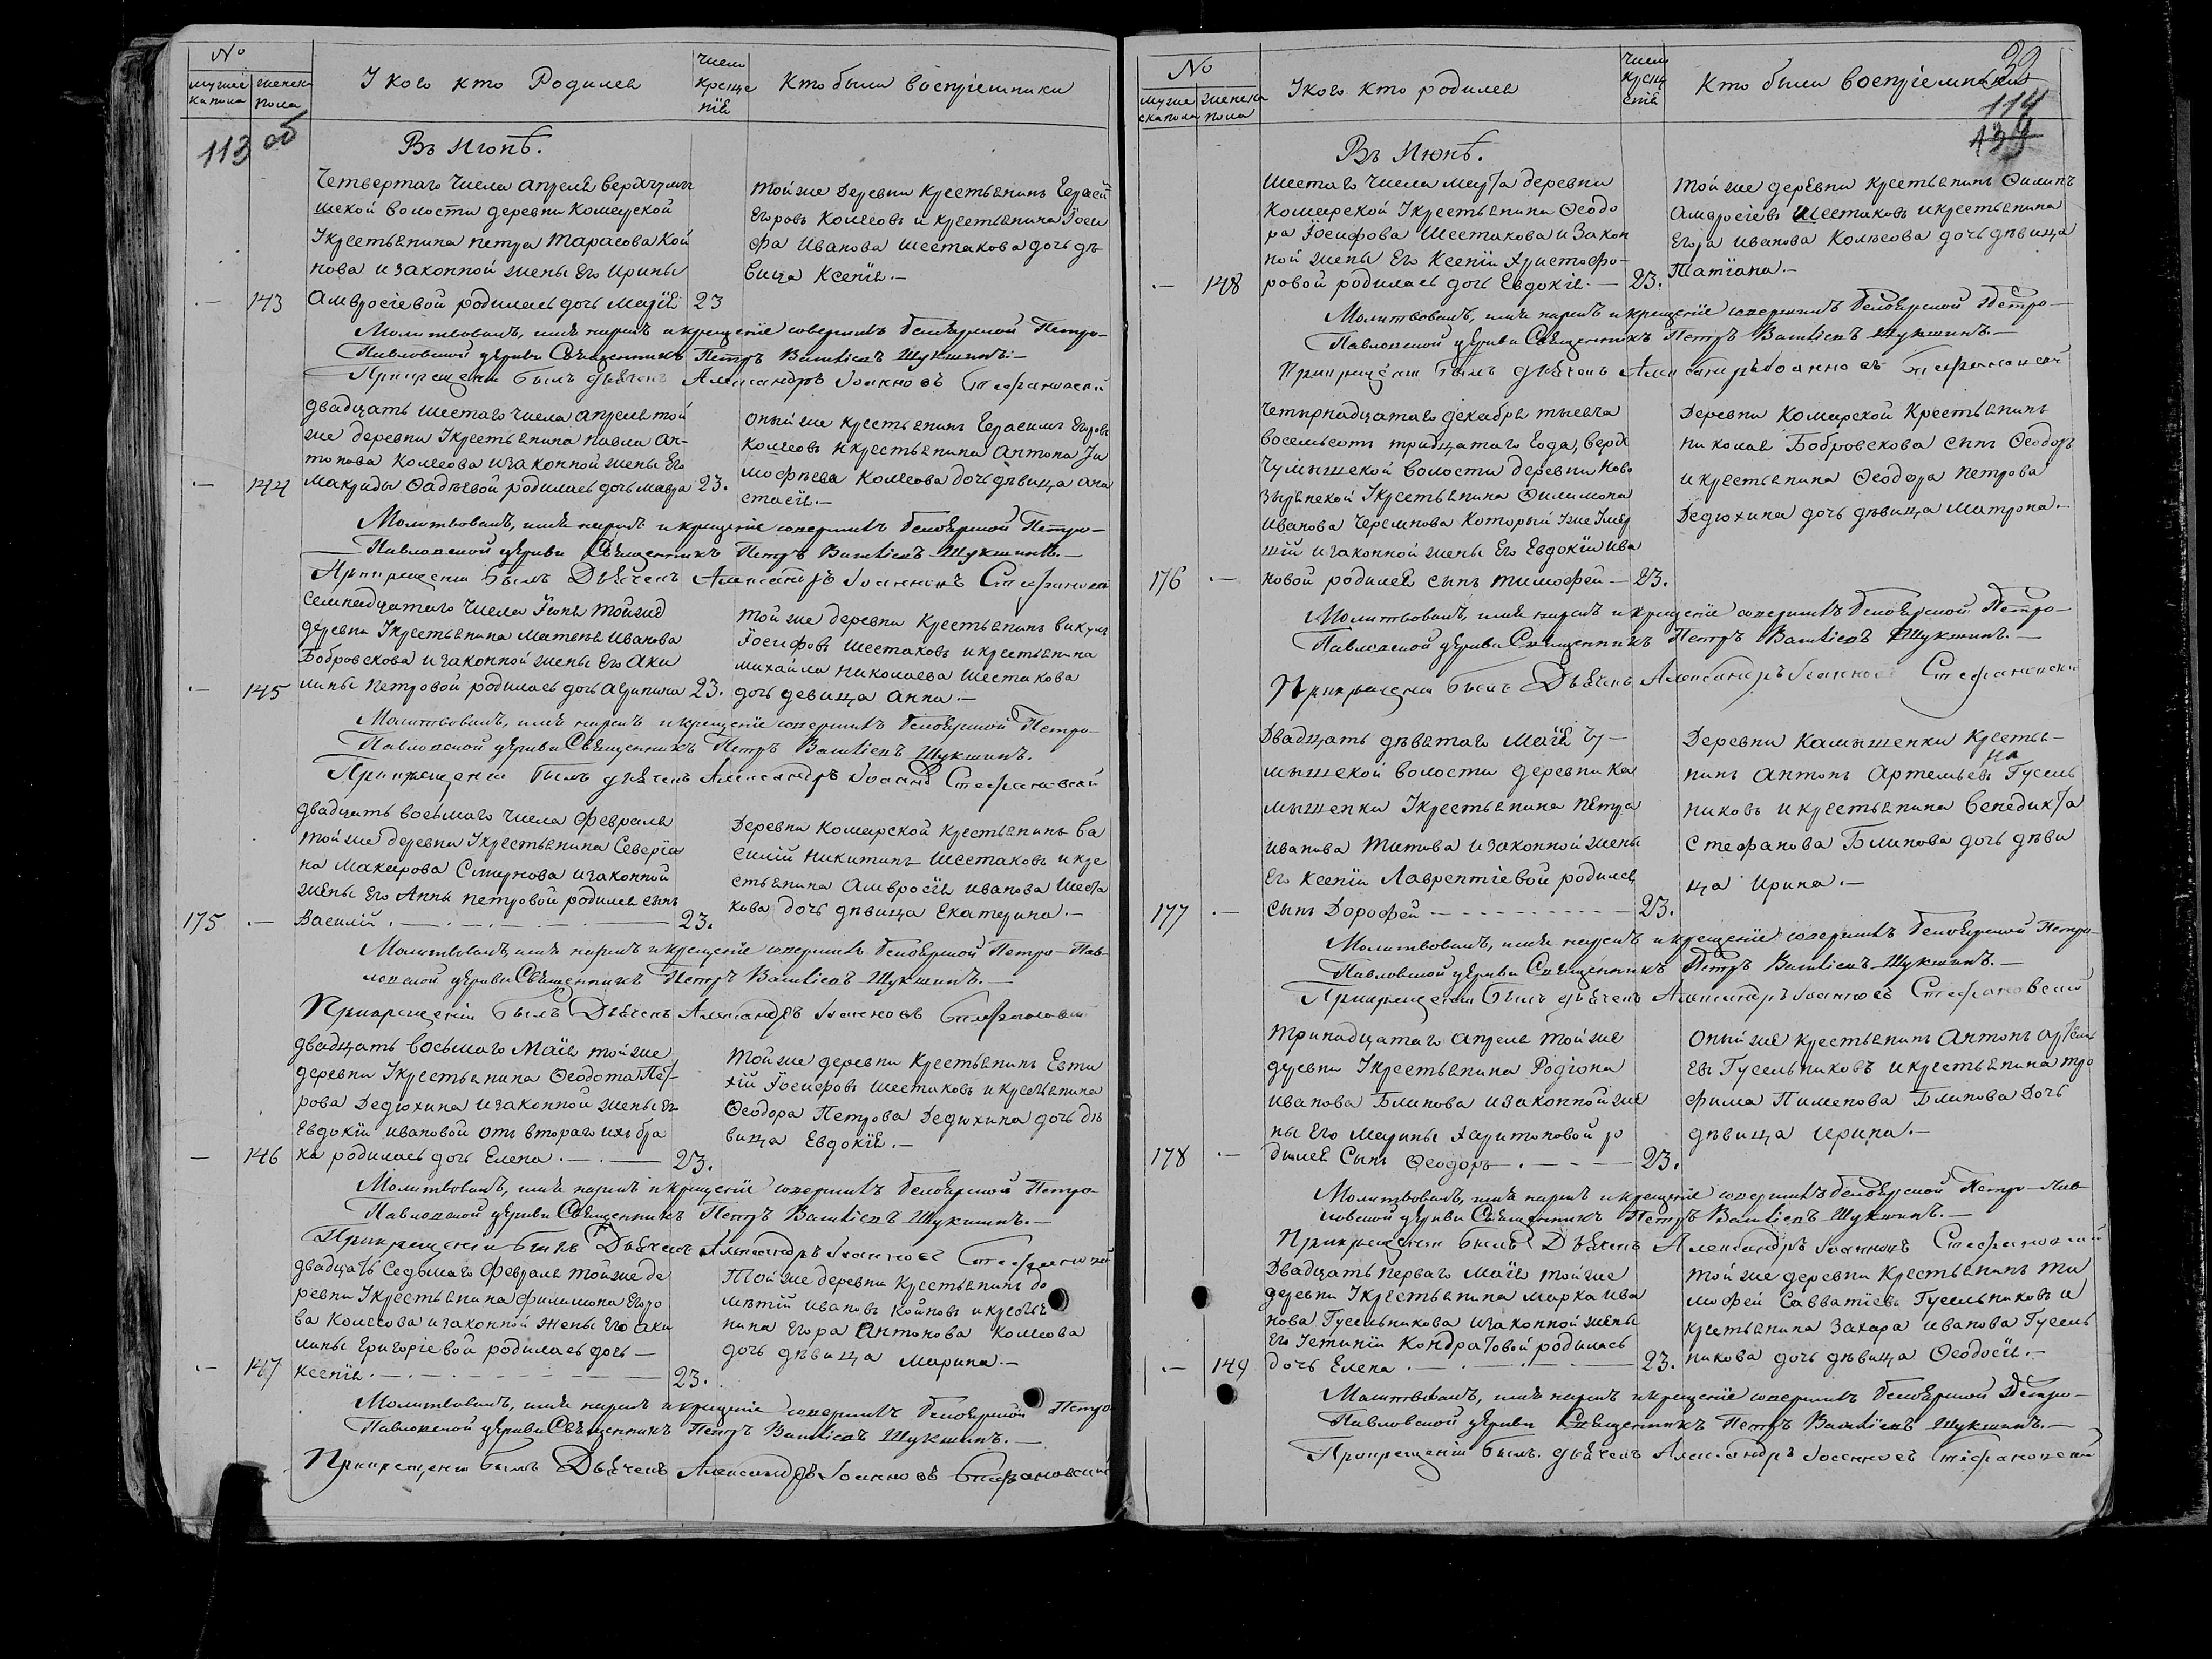 №
мужес
ка пола
женск
пола
У кого кто Родился
число
креще
нїя
Кто были воспрїемники
113 об
Въ Июнѣ.
Четвертаго числа апреля верхчумы
шской волости деревни Комарской
Укрестьянина петра тарасова Кой
нова и законной жены Его Ирины
143
Амвросїевой родилась дочь Марїя
23
той же деревни крестьянинъ Герасї
Егоровъ Колесовъ и крестьянина Їоси
фа Иванова шестакова дочь дѣ
вица Ксенїя.—
Молитвовалъ, имя нарекъ и крещенїе совершилъ белоярской Петро-
Павловской церкви Священникъ Петръ Васильевъ Шукшинъ.—
При крещенїи былъ дьячекъ Александръ Їоанновъ Стефановскїй
двадцать шестаго числа апреля той
же деревни Укрестьянина павла Ан-
тонова Колесова и законной жены Его
144
Макриды Фадѣевой родилась дочь Мавра
23.
оный же крестьянинъ Герасимъ Егоровъ
Колесовъ и крестьянина Антона Ти
мофѣева Колесова дочь дѣвица Ана
стасїя.—
Молитвовалъ, имя нарекъ и крещенїе совершилъ белоярской Петро-
Павловской церкви Священникъ Петръ Васильевъ Шукшинъ.—
При крещенїи былъ Дьячекъ Александръ Їоанновъ Стефановскїй
Семнадцатаго числа Їюня тойже
деревни Укрестьянина Матвѣя Иванова
Бобровскова и законной жены Его Аки
145
лины Петровой родилась дочь Агрипина
23.
той же деревни Крестьянинъ викулъ
Їосифовъ Шестаковъ и крестьянина
михайла Николаева Шестакова
дочь девица Анна.—
Молитвовалъ, имя нарекъ и крещенїе совершилъ белоярской Петро-
Павловской церкви Священникъ Петръ Васильевъ Шукшинъ.
При крещенїи былъ дьячекъ Александръ Їоанновъ Стефановскїй
двадцать восьмаго числа Февраля
той же деревни Укрестьянина Северїа
на Макарова Смирнова и законной
жены Его Анны петровой родился сынъ
175
Василїй
23.
Деревни Комарской крестьянинъ ва
силїй Никитинъ Шестаковъ и кре
стьянина Амвросїя иванова Шеста
кова дочь дѣвица Екатерина.—
Молитвовалъ, имя нарекъ и крещенїе совершилъ белоярской Петро-Пав-
ловской церкви Священникъ Петръ Васильевъ Шукшинъ.—
При крещенїи былъ Дьячекъ Александръ Їоанновъ Стефановскїй
двадцать восьмаго Маїя той же
деревни Укрестьянина Ѳеодота Пет-
рова Дедюхина и законной жены Его
Евдокїи ивановой отъ втораго ихъ бра
146
ка родилась дочь Елена.—
23.
той же деревни Крестьянинъ Евти
хїй Їосифовъ шестаковъ и крестьянина
Ѳеодора Петрова Дедюхина дочь дѣ
вица Евдокїя.—
Молитвовалъ, имя нарекъ и крещенїе совершилъ белоярской Петро-
Павловской церкви Священникъ Петръ Васильевъ Шукшинъ.—
При крещенїи былъ Дьячекъ Александръ Їоанновъ Стефановскїй
двадцать Седьмаго Февраля той же де
ревни Укрестьянина филимона Егоро
ва Колесова и законной жены Его аки
лины Григорїевой родилась дочь—
147
ксенїя
23.
Той же деревни Крестьянинъ до
мѣтїй ивановъ койновъ и крестья
нина Егора Антонова Колесова
дочь дѣвица Марина.—
Молитвовалъ, имя нарекъ и крещенїе совершилъ белоярской Петро
Павловской церкви Священникъ Петръ Васильевъ Шукшинъ.—
При крещенїи былъ Дьячекъ Александръ Їоанновъ Стефановскїй
№
муже
ска пола
женска
пола
У кого кто родился
число
крещ
енїя
Кто были воспрїемники
39
114
139
Въ Июнѣ.
шестаго числа марта деревни
Комарской Укрестьянина Ѳеодо
ра Їосифова Шестакова и закон
ной жены Его Ксенїи Христофо-
148
ровой родилась дочь Евдокїя.—
23.
той же деревни крестьянинъ Филипъ
Амвросїевъ Шестаковъ и крестьянина
Егора иванова Колѣсова дочь дѣвица
Татїана.—
Молитвовалъ, имя нарекъ и крещенїе совершилъ белоярской Петро-
Павловской церкви Священникъ Петръ Васильевъ Шукшинъ.—
При крещенїи былъ дьячекъ Александръ Їоанновъ Стефановскїй
четырнадцатаго декабря тысяча
восемьсотъ тридцатаго года, верх
чумышской волости деревни ново
зырянской Укрестьянина Филимона
Иванова Черемнова который уже умер
шїй и законной жены Его Евдокїи ива
176
новой родился сынъ тимофей—
23.
Деревни Комарской Крестьянинъ
николая Бобровскова сынъ Ѳеодоръ
и крестьянина Ѳеодора петрова
Дедюхина дочь дѣвица Матрона.—
Молитвовалъ, имя нарекъ и крещенїе совершилъ белоярской Петро-
Павловской церкви Священникъ Петръ Васильевъ Шукшинъ.—
При крещенїи былъ Дьячекъ Александръ Їоанновъ Стефановскїй
Двадцать дѣвятаго Маїя Чу-
мышской волости деревни Ка
мышенки Укрестьянина пѣтра
иванова Титова и законной жены
Его Ксенїи Лаврентїевой родился
177
сынъ Дорофей
23.
Деревни Камышенки Кресть-
нинъ антонъ Артемьевъ Гусель
никовъ и крестьянина Венедикта
Стефанова Блинова дочь дѣви
ца Ирина.—
Молитвовалъ, имя нарекъ и крещенїе совершилъ белоярской Петро-
Павловской церкви Священникъ Петръ Васильевъ Шукшинъ.—
При крещенїи былъ дьячекъ Александръ Їоанновъ Стефановскїй
тринадцатаго апреля той же
деревни Укрестьянина Родїона
иванова Блинова и законной же
ны Его Марины Харитоновой ро
178
дился Сынъ Ѳеодоръ
23.
оный же крестьянинъ антонъ арtемь
евъ Гусельниковъ и крестьянина тро
фима Пименова Блинова Дочь
дѣвица Ирина.—
Молитвовалъ, имя нарекъ и крещенїе совершилъ белоярской Петро-Пав
ловской церкви Священникъ Петръ Васильевъ Шукшинъ.—
При крещенїи былъ Дьячекъ Александръ Їоанновъ Стефановскїй
Двадцать перваго Маїя той же
деревни Укрестьянина марка ива
нова Гусельникова и законной жены
Его Устинїи Кондратовой родилась
149
дочь Елена
23.
той же деревни Крестьянинъ ти
мофей Савватїевъ Гусельниковъ и
крестьянина Захара иванова Гусель
никова дочь дѣвица Ѳеодосїя.—
Молитвовалъ, имя нарекъ и крещенїе совершилъ белоярской Петро-
Павловской церкви Священникъ Петръ Васильевъ Шукшинъ.—
При крещенїи былъ дьячекъ Александръ Їоанновъ Стефановскїй